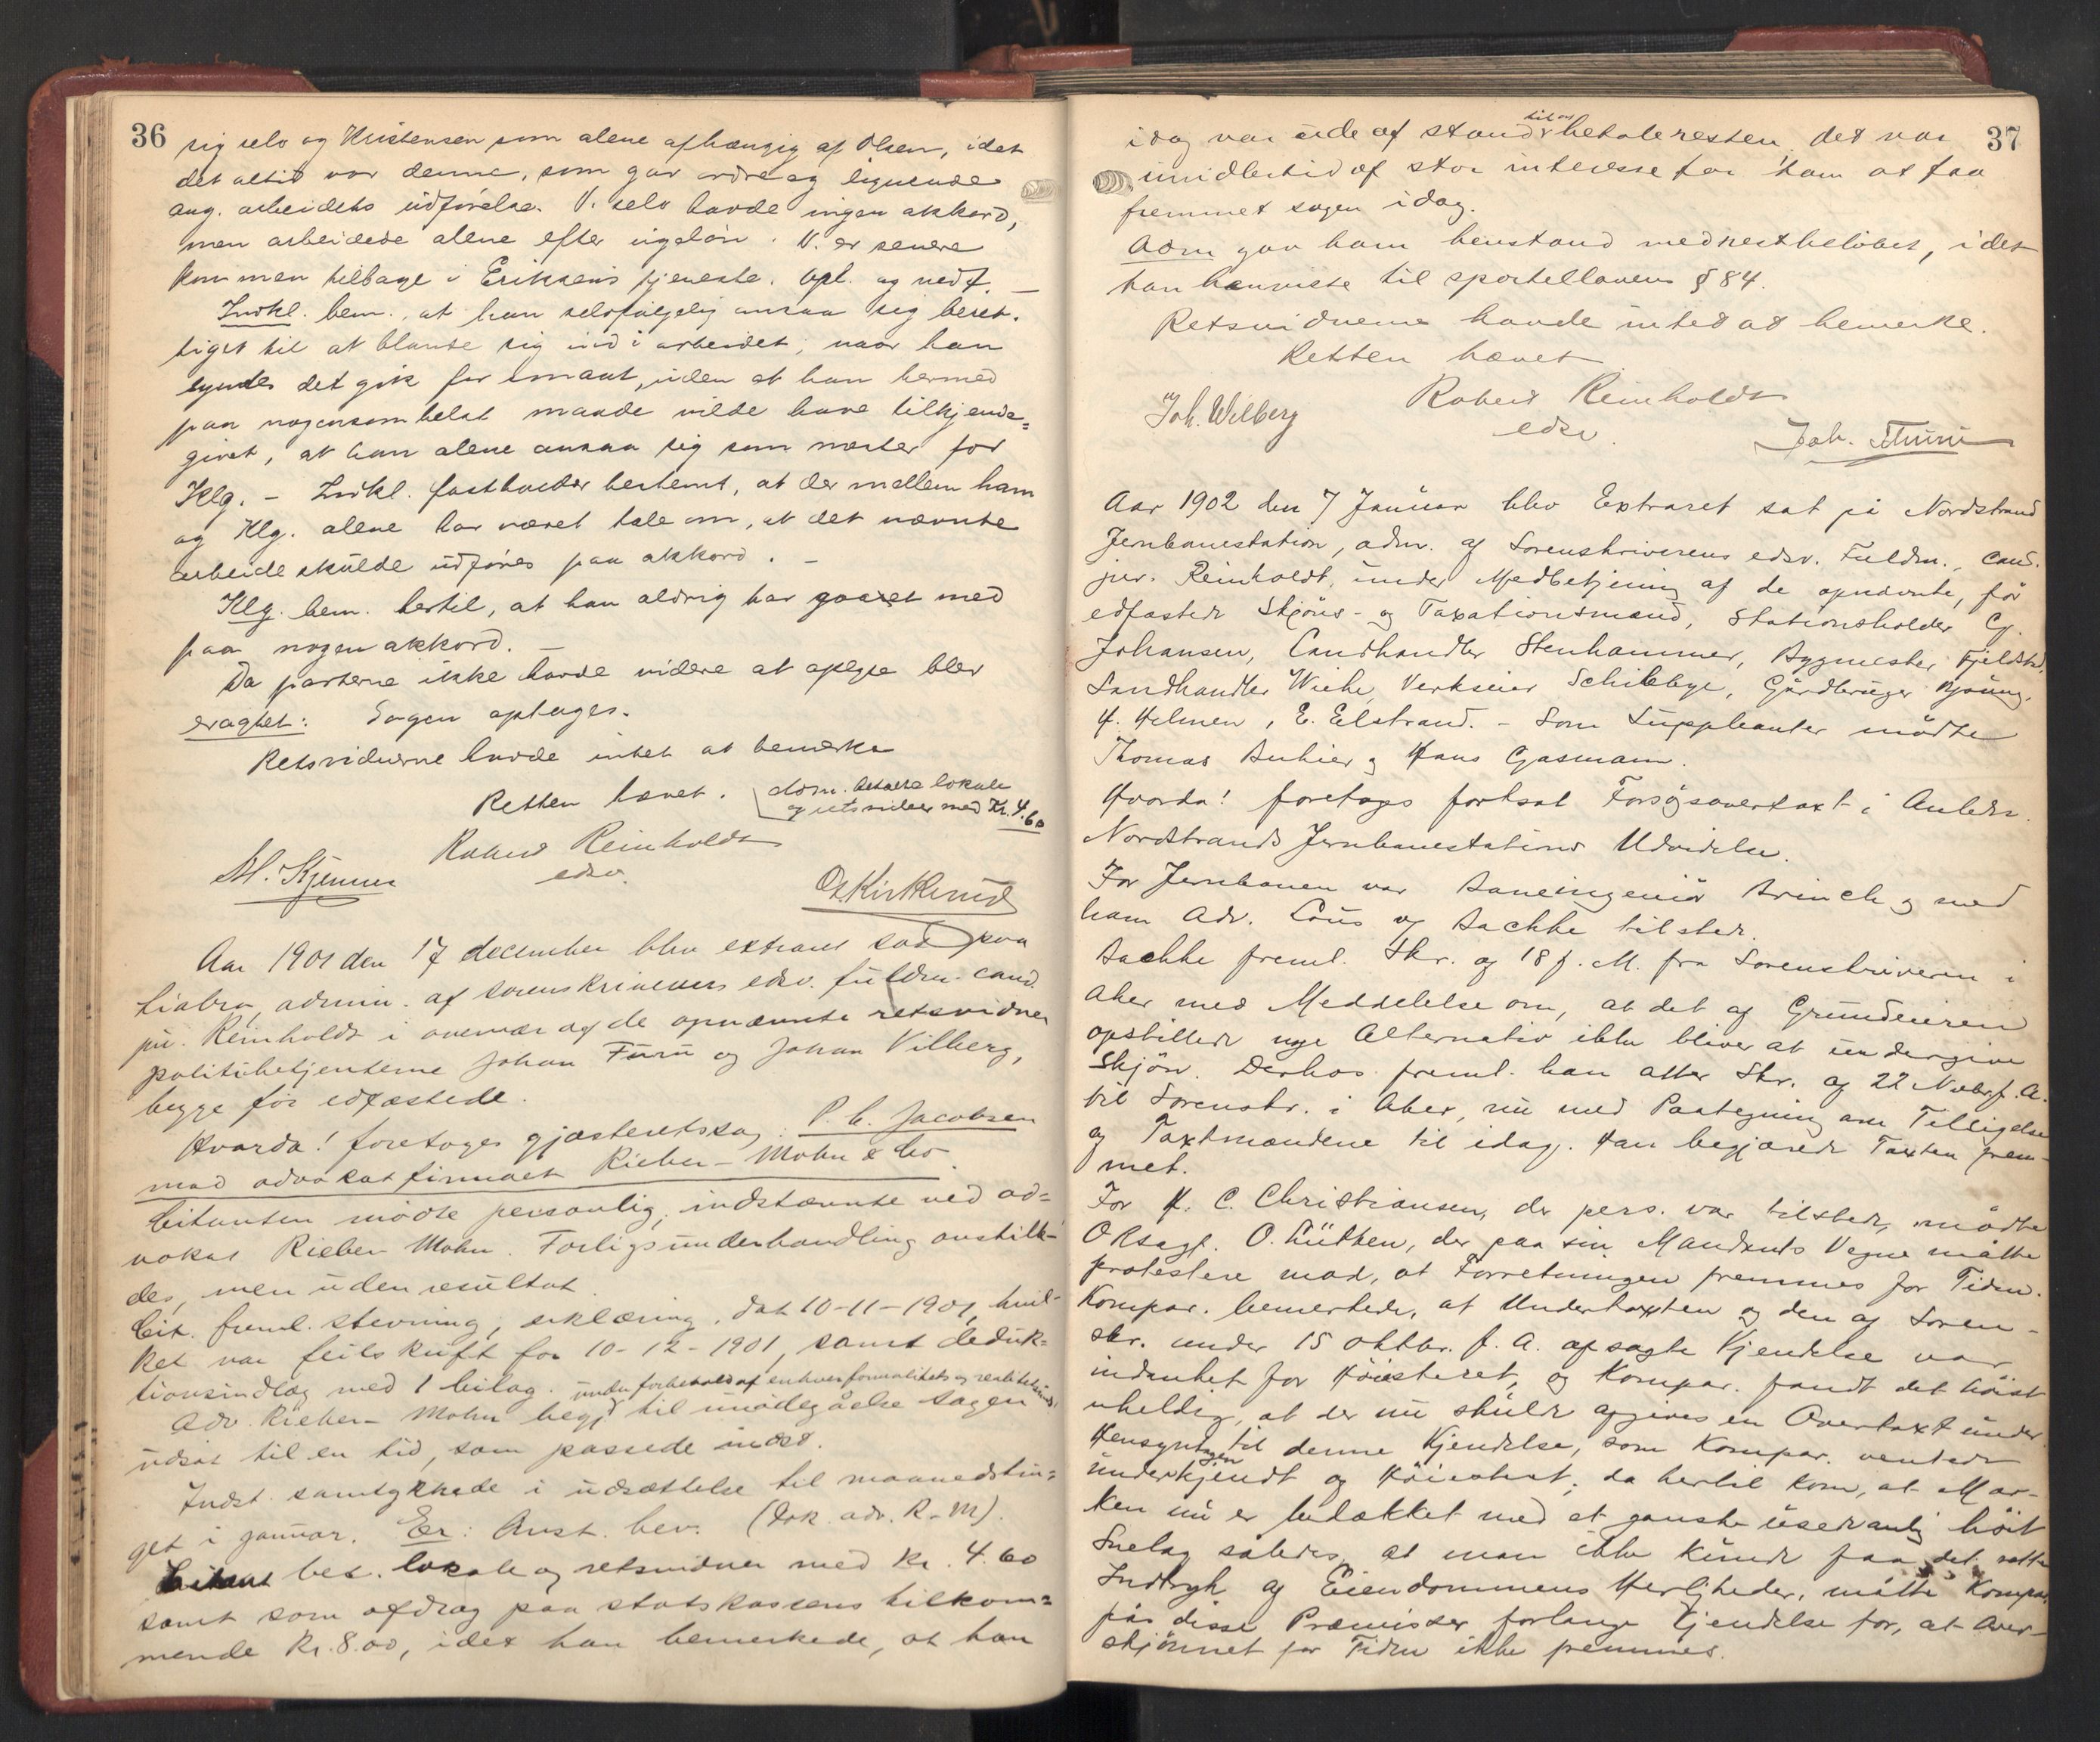 36
sig selv og Kristensen som alene afhængig af Olsen, idet
det altid var denne, som gav ordre og lignende
ang. arbeidets udførelse. V. selv havde ingen akkord,
men arbeidede alene efter ugeløn. V. er senere
kommen tilbage i Eriksens tjeneste. Opl. og vedt. —
Indkl. bem. at han selvfølgelig ansaa sig beret-
tiget til at blande sig ind i arbeidet, naar han
syntes det gik for smaat, uden at han hermed
paa nogensomhelst maade vilde have tilkjende=
givet, at han alene ansaa sig som mester for
Klg. – Indkl. fastholder bestemt, at der mellem ham
og Klg. alene har været tale om, at det nævnte
arbeide skulde udføres paa akkord. –
Klg. bem. hertil, at han aldrig har gaaet med
paa nogen akkord. —
Da parterne ikke havde videre at oplyse blev
eragtet: Sagen optages.
Retsvidnerne havde intet at bemerke
Retten hævet.
dom. betalte lokale
og retsvidner med Kr. 4.60
Robert Reinholdt
edsv.
M. Kjenner
O. Kirkerud
Aar 1901 den 17 december blev extraret sat paa
Liabro, admin. af sorenskriverens edsv. fuldm. cand.
jur. Reinholdt i overvær af de opnævnte retsvidner
politibetjenterne Johan Furu og Johan Vilberg,
begge før edfæstede.
Hvorda! foretoges gjæsteretssag: P. C. Jacobsen
mod advokatfirmaet Rieber-Mohn & Co.
Citanten mødte personlig, indstævnte ved ad=
vokat Rieber Mohn. Forligsunderhandling anstill-
des, men uden resultat.
Cit. freml. stevning, erklæring, dat 10-11-1901, hvil-
ket var feilskrift for 10-12-1901, samt deduk=
tionsindlæg med 1 bilag.
under forbehold af enhver formalitets og realitetsinds.
Adv. Rieber-Mohn begj. til imødegåelse sagen
udsat til en tid, som passede indst.
Indst. samtykkede i udsættelse til maanedstin=
get i januar. Er: Anst. bev. (Dok. adv. R-M).
Citant bet. lokale og retsvidner med kr. 4.60
samt som afdrag paa statskassens tilkom=
mende Kr. 8.00, idet han bemerkede, at han
37
idag var ude af stand til at betale resten, det var
imidlertid af stor interesse for ham at faa
fremmet sagen idag.
Adm gav ham henstand med restbeløbet, idet
han henviste til sportellovens § 84.
Retsvidnerne havde intet at bemerke.
Retten hævet
Robert Reinholdt
edsv.
Joh. Wilberg
Joh. Furu
Aar 1902 den 7 Januar blev Extraret sat på Nordstrand
Jernbanestation, adm. af Sorenskriverens edsv. Fuldm., cand.
jur. Reinholdt, under Medbetjening af de opnævnte, før
edfæstede Skjøns- og Taxationsmænd, Stationsholder Cg.
Johansen, Landhandler Stenhammer, Bygmester Fjeldstad,
Landhandler Wiehe, Verkseier Schibbye, Gårdbruger
H. Holmen, E. Elstrand. – Som Suppleanter mødte
Thomas og Hans Gasmann.
Hvorda! foretages fortsat Forsøgsovertaxt i Anledn.
Nordstrands Jernbanestations Udvidelse.
For Jernbanen var Baneingeniør Brinch og med
ham Adv. Cous og Bachke tilstede.
Bachke freml. Skr. af 18 f. M. fra Sorenskriveren i
Aker med Meddelelse om, at det af Grundeieren
opstillede nye Alternativ ikke bliver at undergive
Skjøn. Derhos freml. han atter Skr. af 22 Novbr f. A.
til Sorenskr. i Aker, nu med Paategning om Tilsigelse
af Taxtmændene til idag. Han begjærede Taxten frem-
met.
For H. C. Christiansen, der pers. var tilstede, mødte
ORsagf. O. Lütken, der paa sin Mandants Vegne måtte
protestere mod, at Forretningen fremmes for Tiden.
Kompar. bemerkede, at Undertaxten og den af Soren-
skr. under 15 oktbr. f. A. afsagte Kjendelse var
indanket for Høiesteret, og Kompar. fandt det høist
uheldig, at der nu skulde afgives en Overtaxt under
Hensyntagen til denne Kjendelse, som Kompar. ventede
underkjendt af Høiesteret; da hertil kom, at Mar-
ken nu er bedækket med et ganske usedvanlig høit
Snelag således, at man ikke kunde faa det rette
Indtryk af Eiendommens Herligheder, måtte Kompar.
på disse Præmisser forlange Kjendelse for, at Over-
skjønnet for Tiden ikke fremmes.